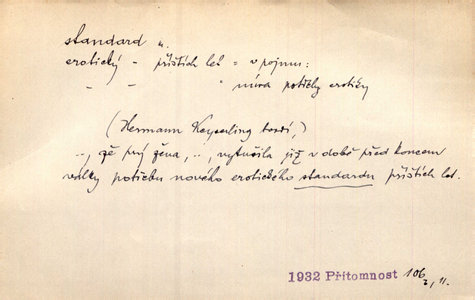 standard u.
erotický - příštích let = v pojmu:
- - " míra potřeby erotiky
(Hermann Keyserling tvrdí,)
.., že prý žena, .., vytušila již v době před koncem
války potřebu nového erotického standardu příštích let.
1932 Přítomnost 106
2, 11.